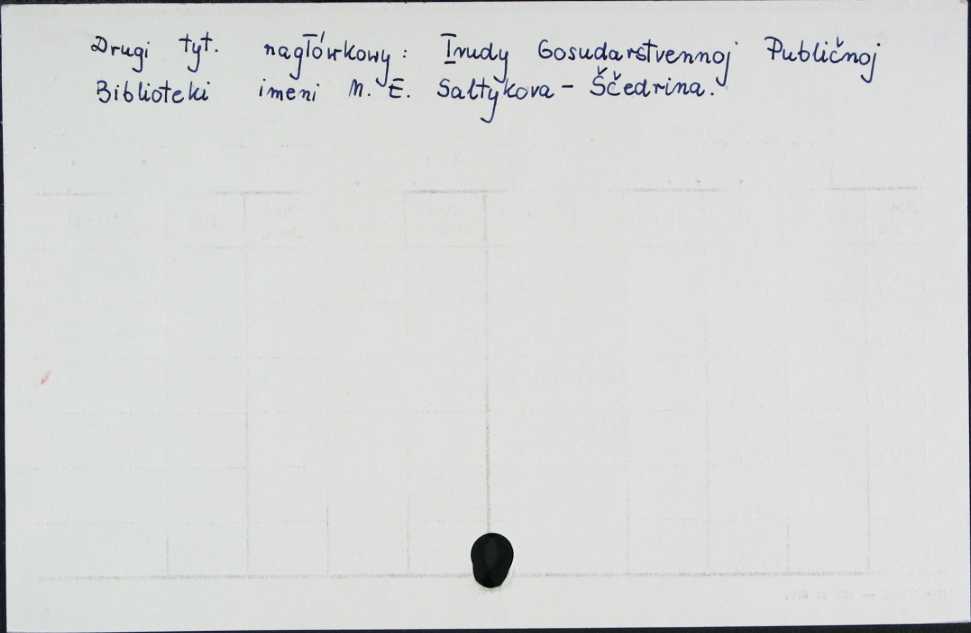 Drugi tyt. nagłówkowy: Trudy Gosudarstvennoj Publičnoj
Biblioteki imeni M. E. Saltykova - Ščedrina.